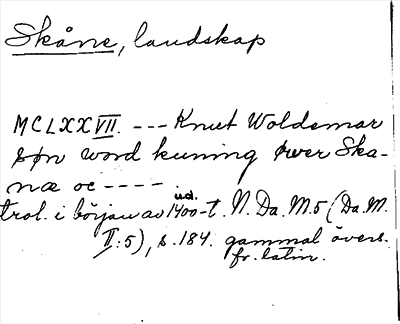 Skåne, landskap
MCLXXVII. --- Knut Woldemar
søn word kuning øwer Ska-
næ oc ----
trol. i början av 1400-t. ud. N. Da. M. 5 (Da. M.
II:5), s. 184. gammal övers.
fr. latin.